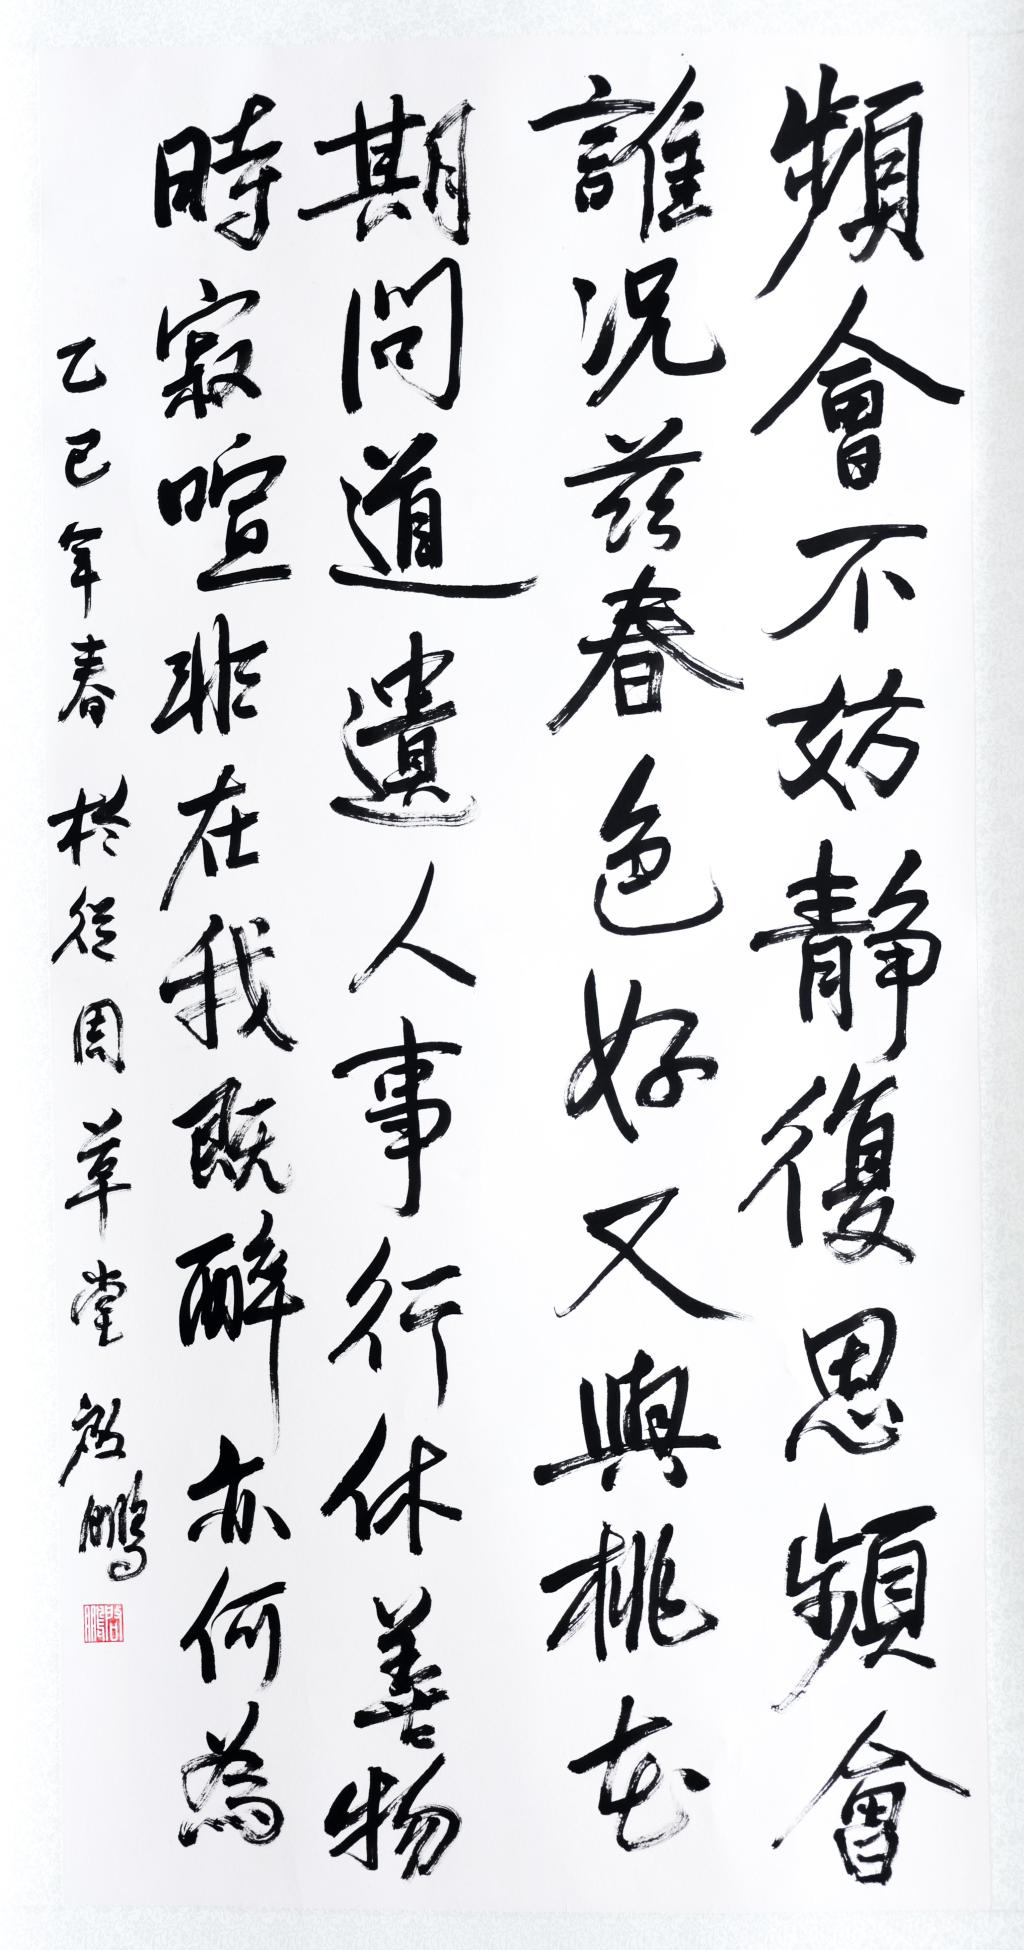 頻會不妨靜復思頻會
誰況茲春色好又與桃花
期問道遺人事行休善物
時寂喧非在我既醉亦何為
乙巳年春於從周草堂啟鵬